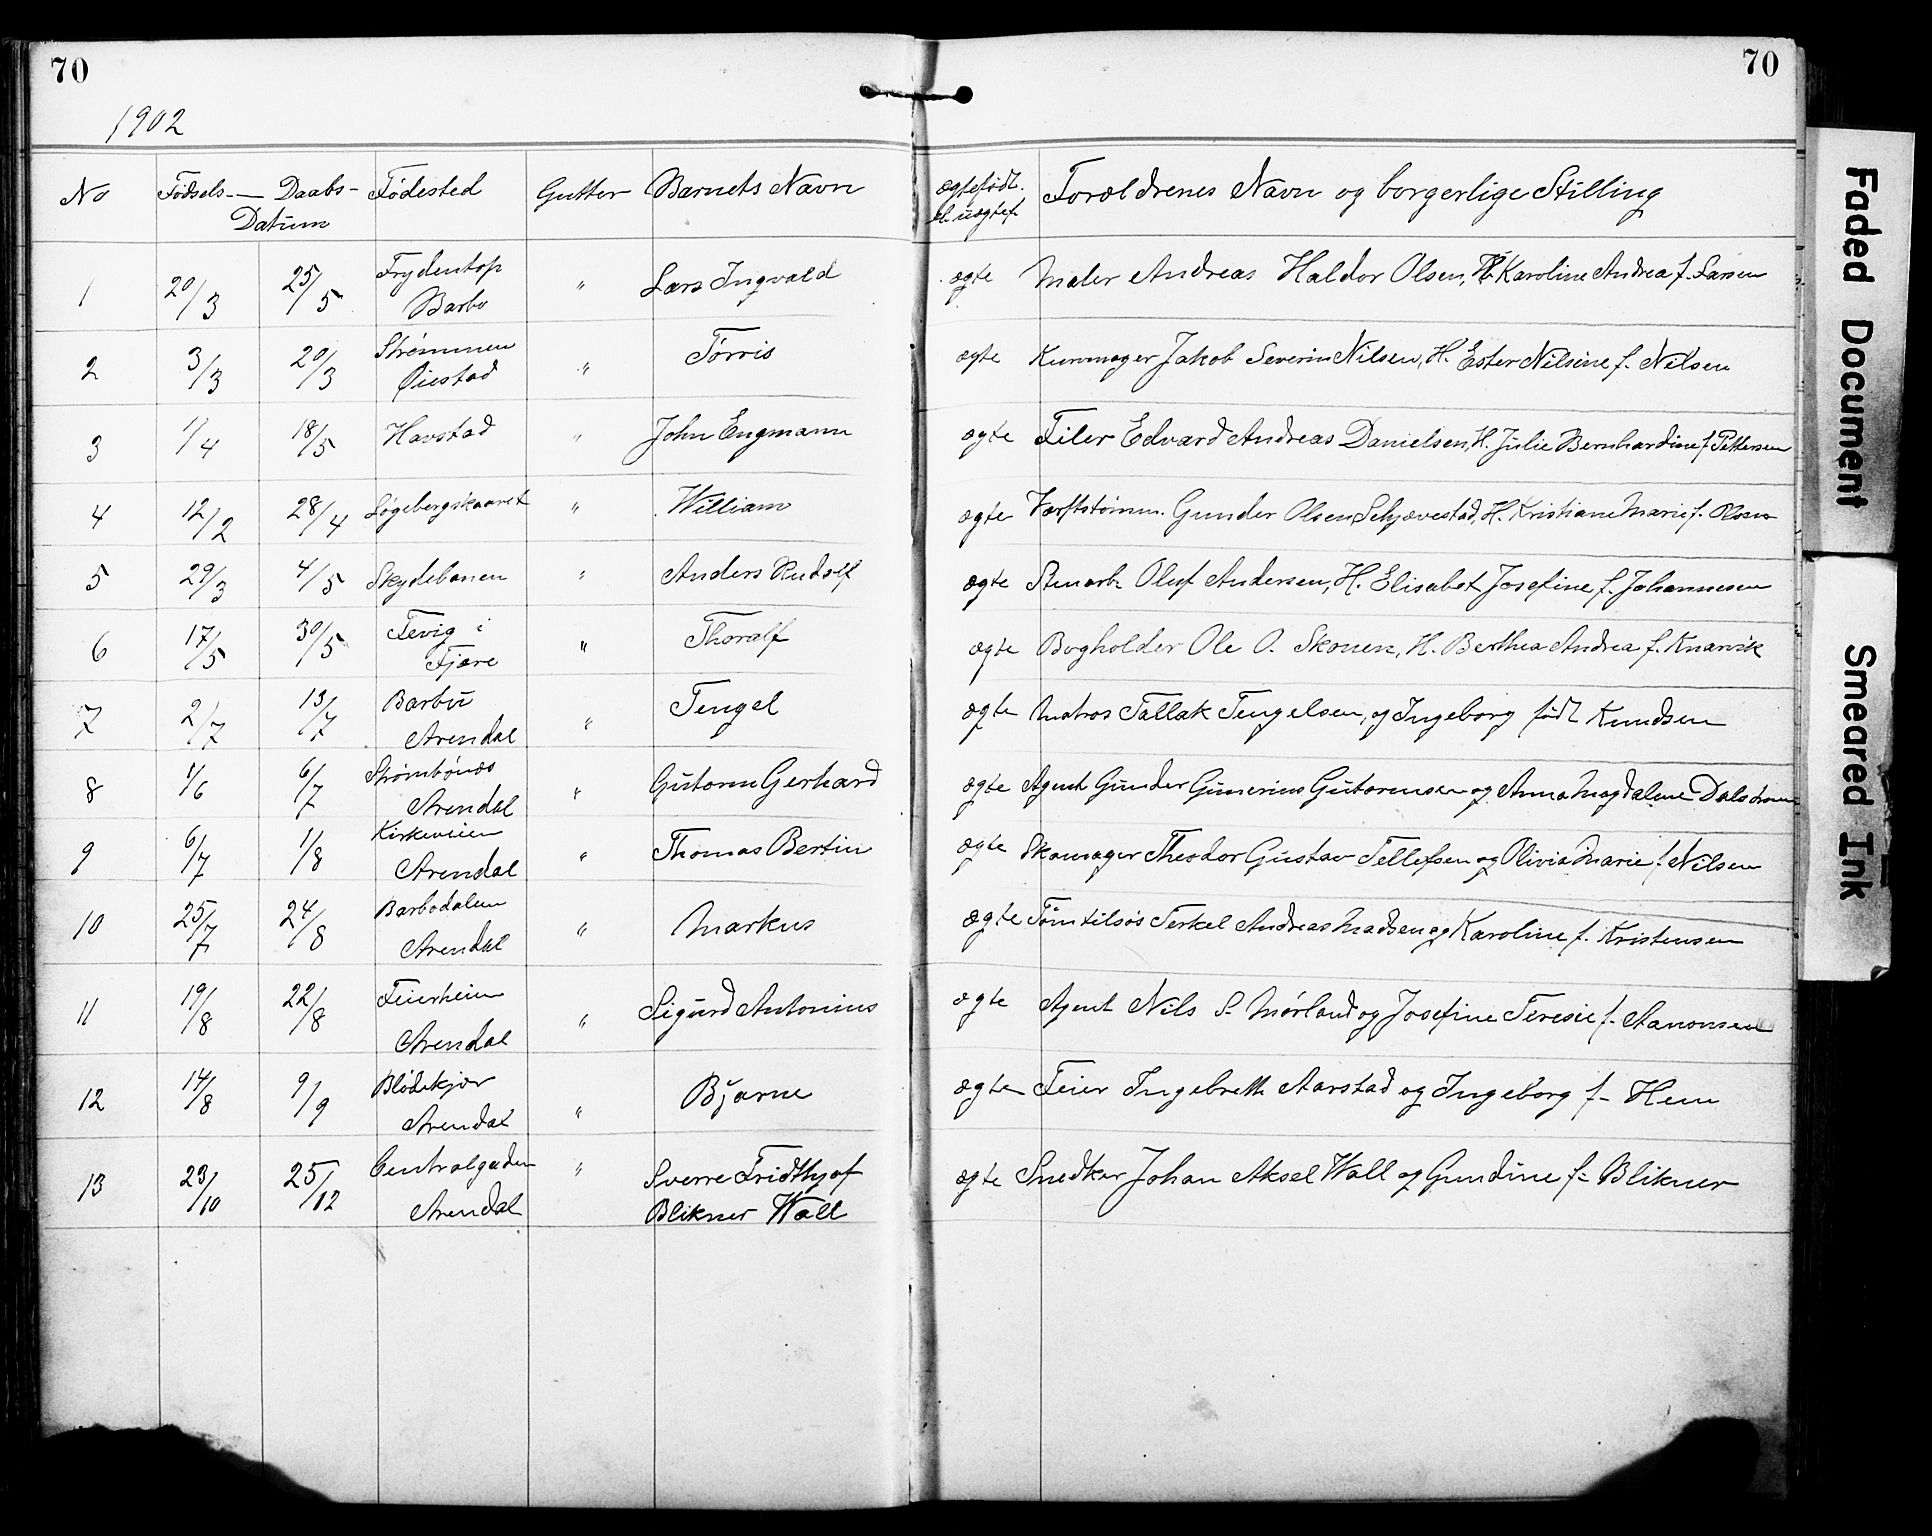 70
70
1902
No Fødsels- Daabs- Fødested Gutter Barnets Navn ægtefødt. Forældrenes Navn og borgerlige Stilling
Datum el. uægtef.
1 20/3 25/5 Frydentop " Lars Ingvald ægte Maler Andreas Haldor Olsen, H. Karoline Andrea f. Larsen
Barbo
2 3/3 20/3 Strømmen " Tørris ægte Kurvmager Jakob Severin Nilsen, H. Ester Nilsine f. Nilsen
Øiestad
3 1/4 18/5 Havstad " John Engmann ægte Filer Edvard Andreas Danielsen, H. Julie Bernhardine f. Pettersen
4 12/2 28/4 Løgebergskaaret " William ægte Værftstømm. Gunder Olsen Schjævestad, H. Kristiane Marie f. Olsen
5 29/3 4/5 Skydebanen " Anders Rudolf ægte Stenarb. Oluf Andersen, H. Elisabet Josefine f. Johannesen
6 17/5 30/5 Fevig i " Thoralf ægte Bogholder Ole O. Skouen, H. Berthea Andrea f. Knarvik
Fjære
7 2/7 13/7 Barbu " Tengel ægte Matros Tallak Tengelsen, og Ingeborg født Knudsen
Arendal
8 1/6 6/7 Strømbónæs " Gutorm Gerhard ægte Agent Gunder Gunerius Gutormsen og Anna Magdalene
Arendal
9 6/7 1/8 Kirkeveien " Thomas Bertin ægte Skomager Theodor Gustav Tellefsen og Olivia Marie f. Nilsen
Arendal
10 25/7 24/8 Barbodalen " Markus ægte Terkel Andreas Madsen og Karoline f. Kristensen
Arendal
11 19/8 22/8 Feierheien " Sigurd Antonius ægte Agent Nils S. Mørland og Josefine Teresie f. Aanonsen
Arendal
12 14/8 9/9 Blødekjær " Bjarne ægte Feier Ingebreth Aarstad og Ingeborg f. Hem
Arendal
13 23/10 25/12 Centralgaden " Sverre Fridthjof ægte Snedker Johan Aksel Wall og Gundine f. Blikner
Arendal Blikner Wall
Faded Document
Smeared Ink